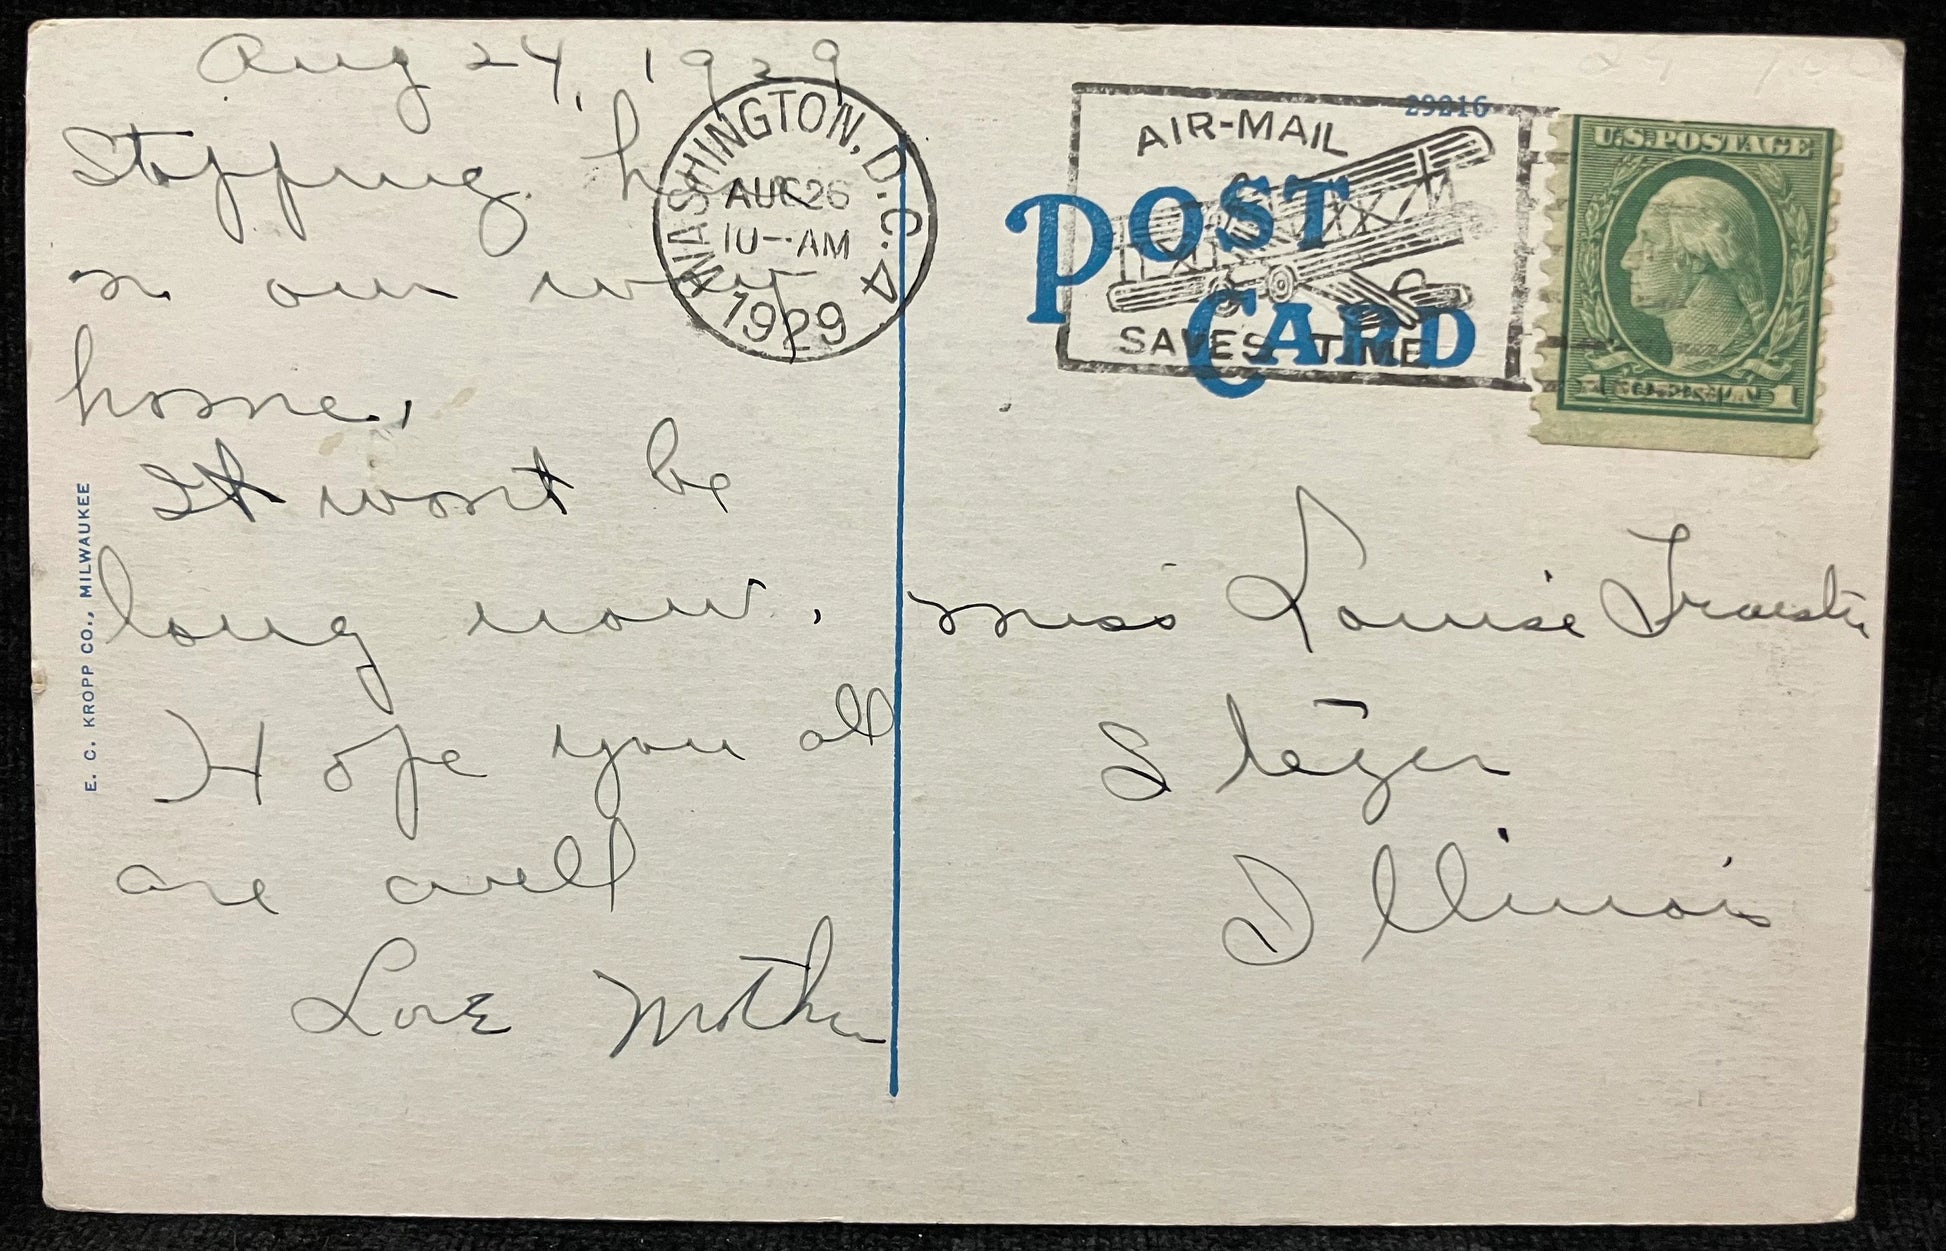 Aug 24, 1929
Stopping here
n our way
home.
It wont be
long now.
Hope you all
are well
Love Mother
E. C. KROPP CO., MILWAUKEE
WASHINGTON, D.C. 4
AUG 26
10-AM
1929
29216
AIR-MAIL
SAVES TIME
POST
CARD
U.S. POSTAGE
1 1
Miss Louise
Steger
Illinois